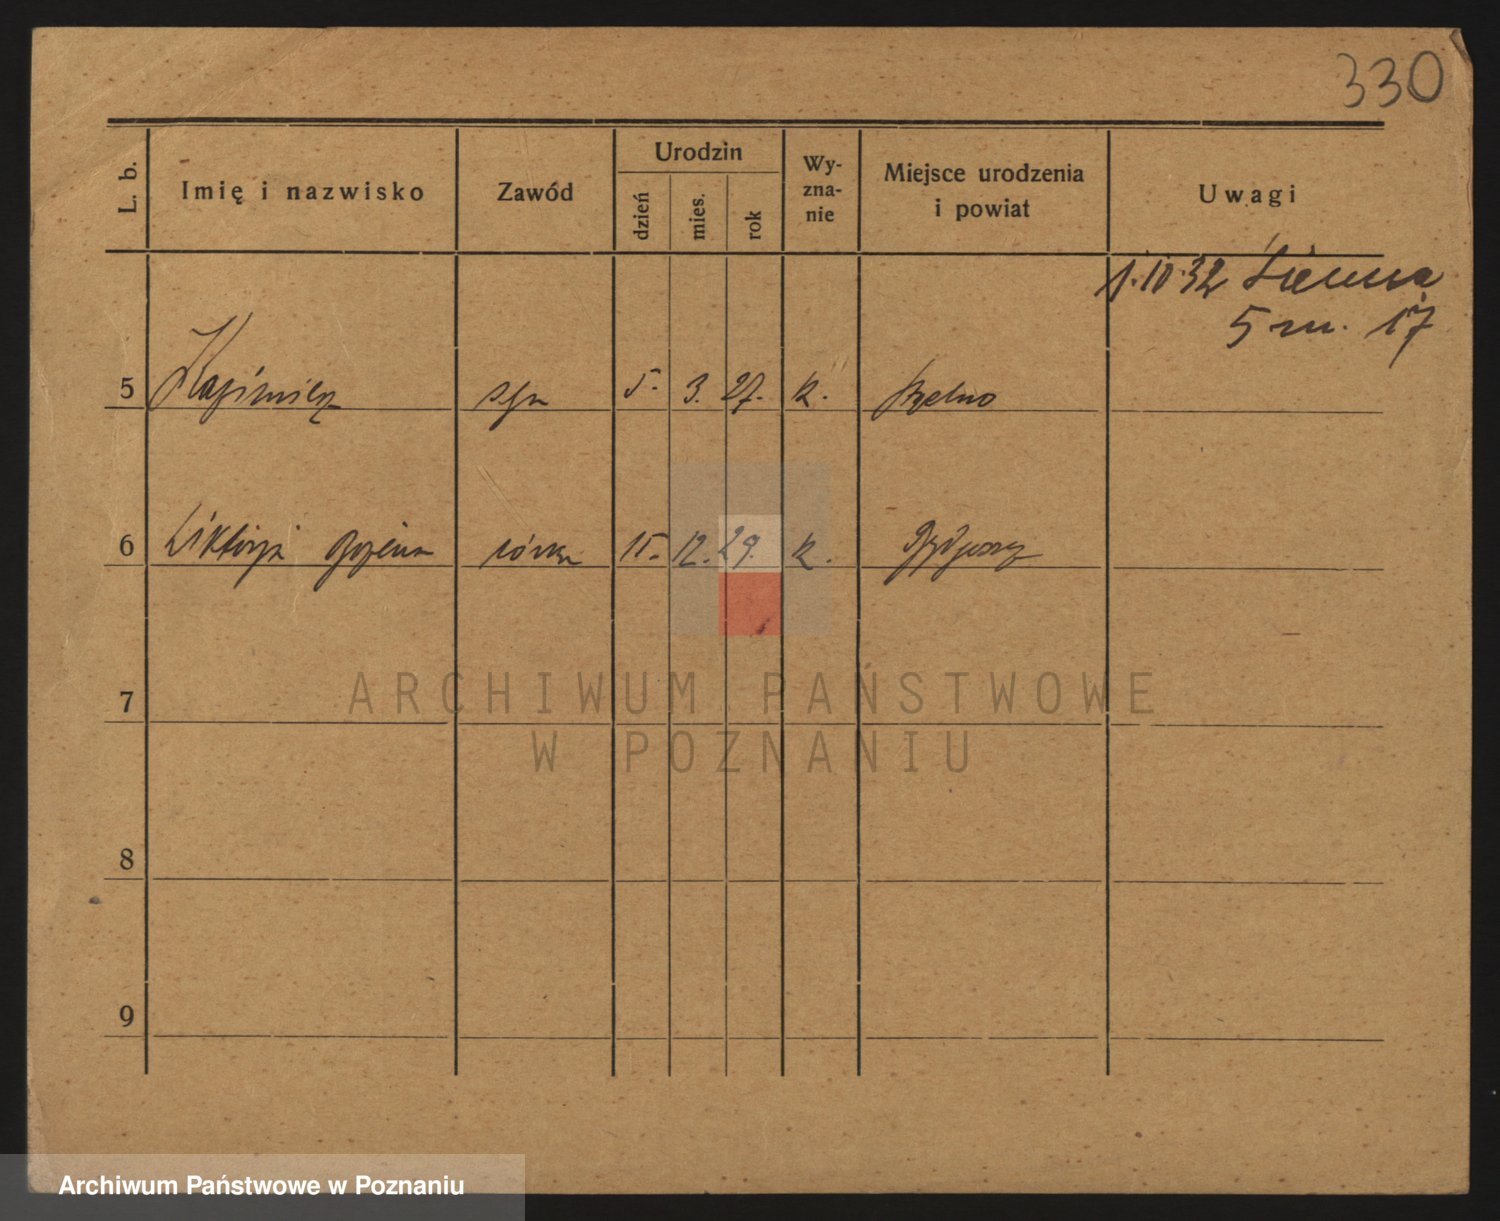 330
L. b. Imię i nazwisko Zawód Urodzin dzień mies. rok Wy-zna-nie Miejsce urodzenia i powiat Uwagi
1.10.32 Sienna
5 m. 17
5 Kazimierz syn 5. 3. 27. k.
6 Wiktorja Bożena córka 15. 12. 29. k. Bydgoszcz
7
ARCHIWUM PAŃSTWOWE
W POZNANIU
8
9
Archiwum Państwowe w Poznaniu